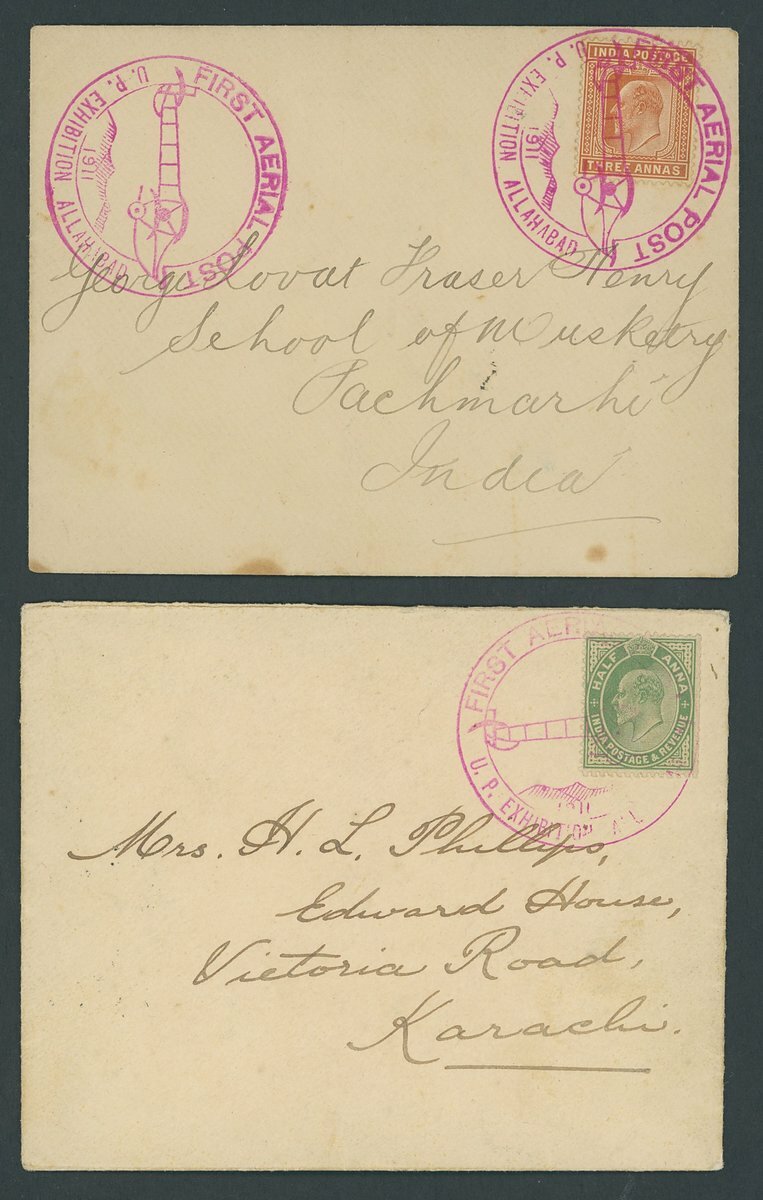 FIRST AERIAL POST
U. P. EXHIBITION ALLAHABAD
1911
FIRST AERIAL POST
U. P. EXHIBITION ALLAHABAD
1911
INDIA POSTAGE
THREE ANNAS
George Lovat Fraser Henry
School of Musketry
Pachmarhi
India
FIRST AERI
U. P. EXHIBITION AL
1911
HALF ANNA
INDIA POSTAGE & REVENUE
Mrs. H. L. Phillips,
Edward House,
Victoria Road,
Karachi.